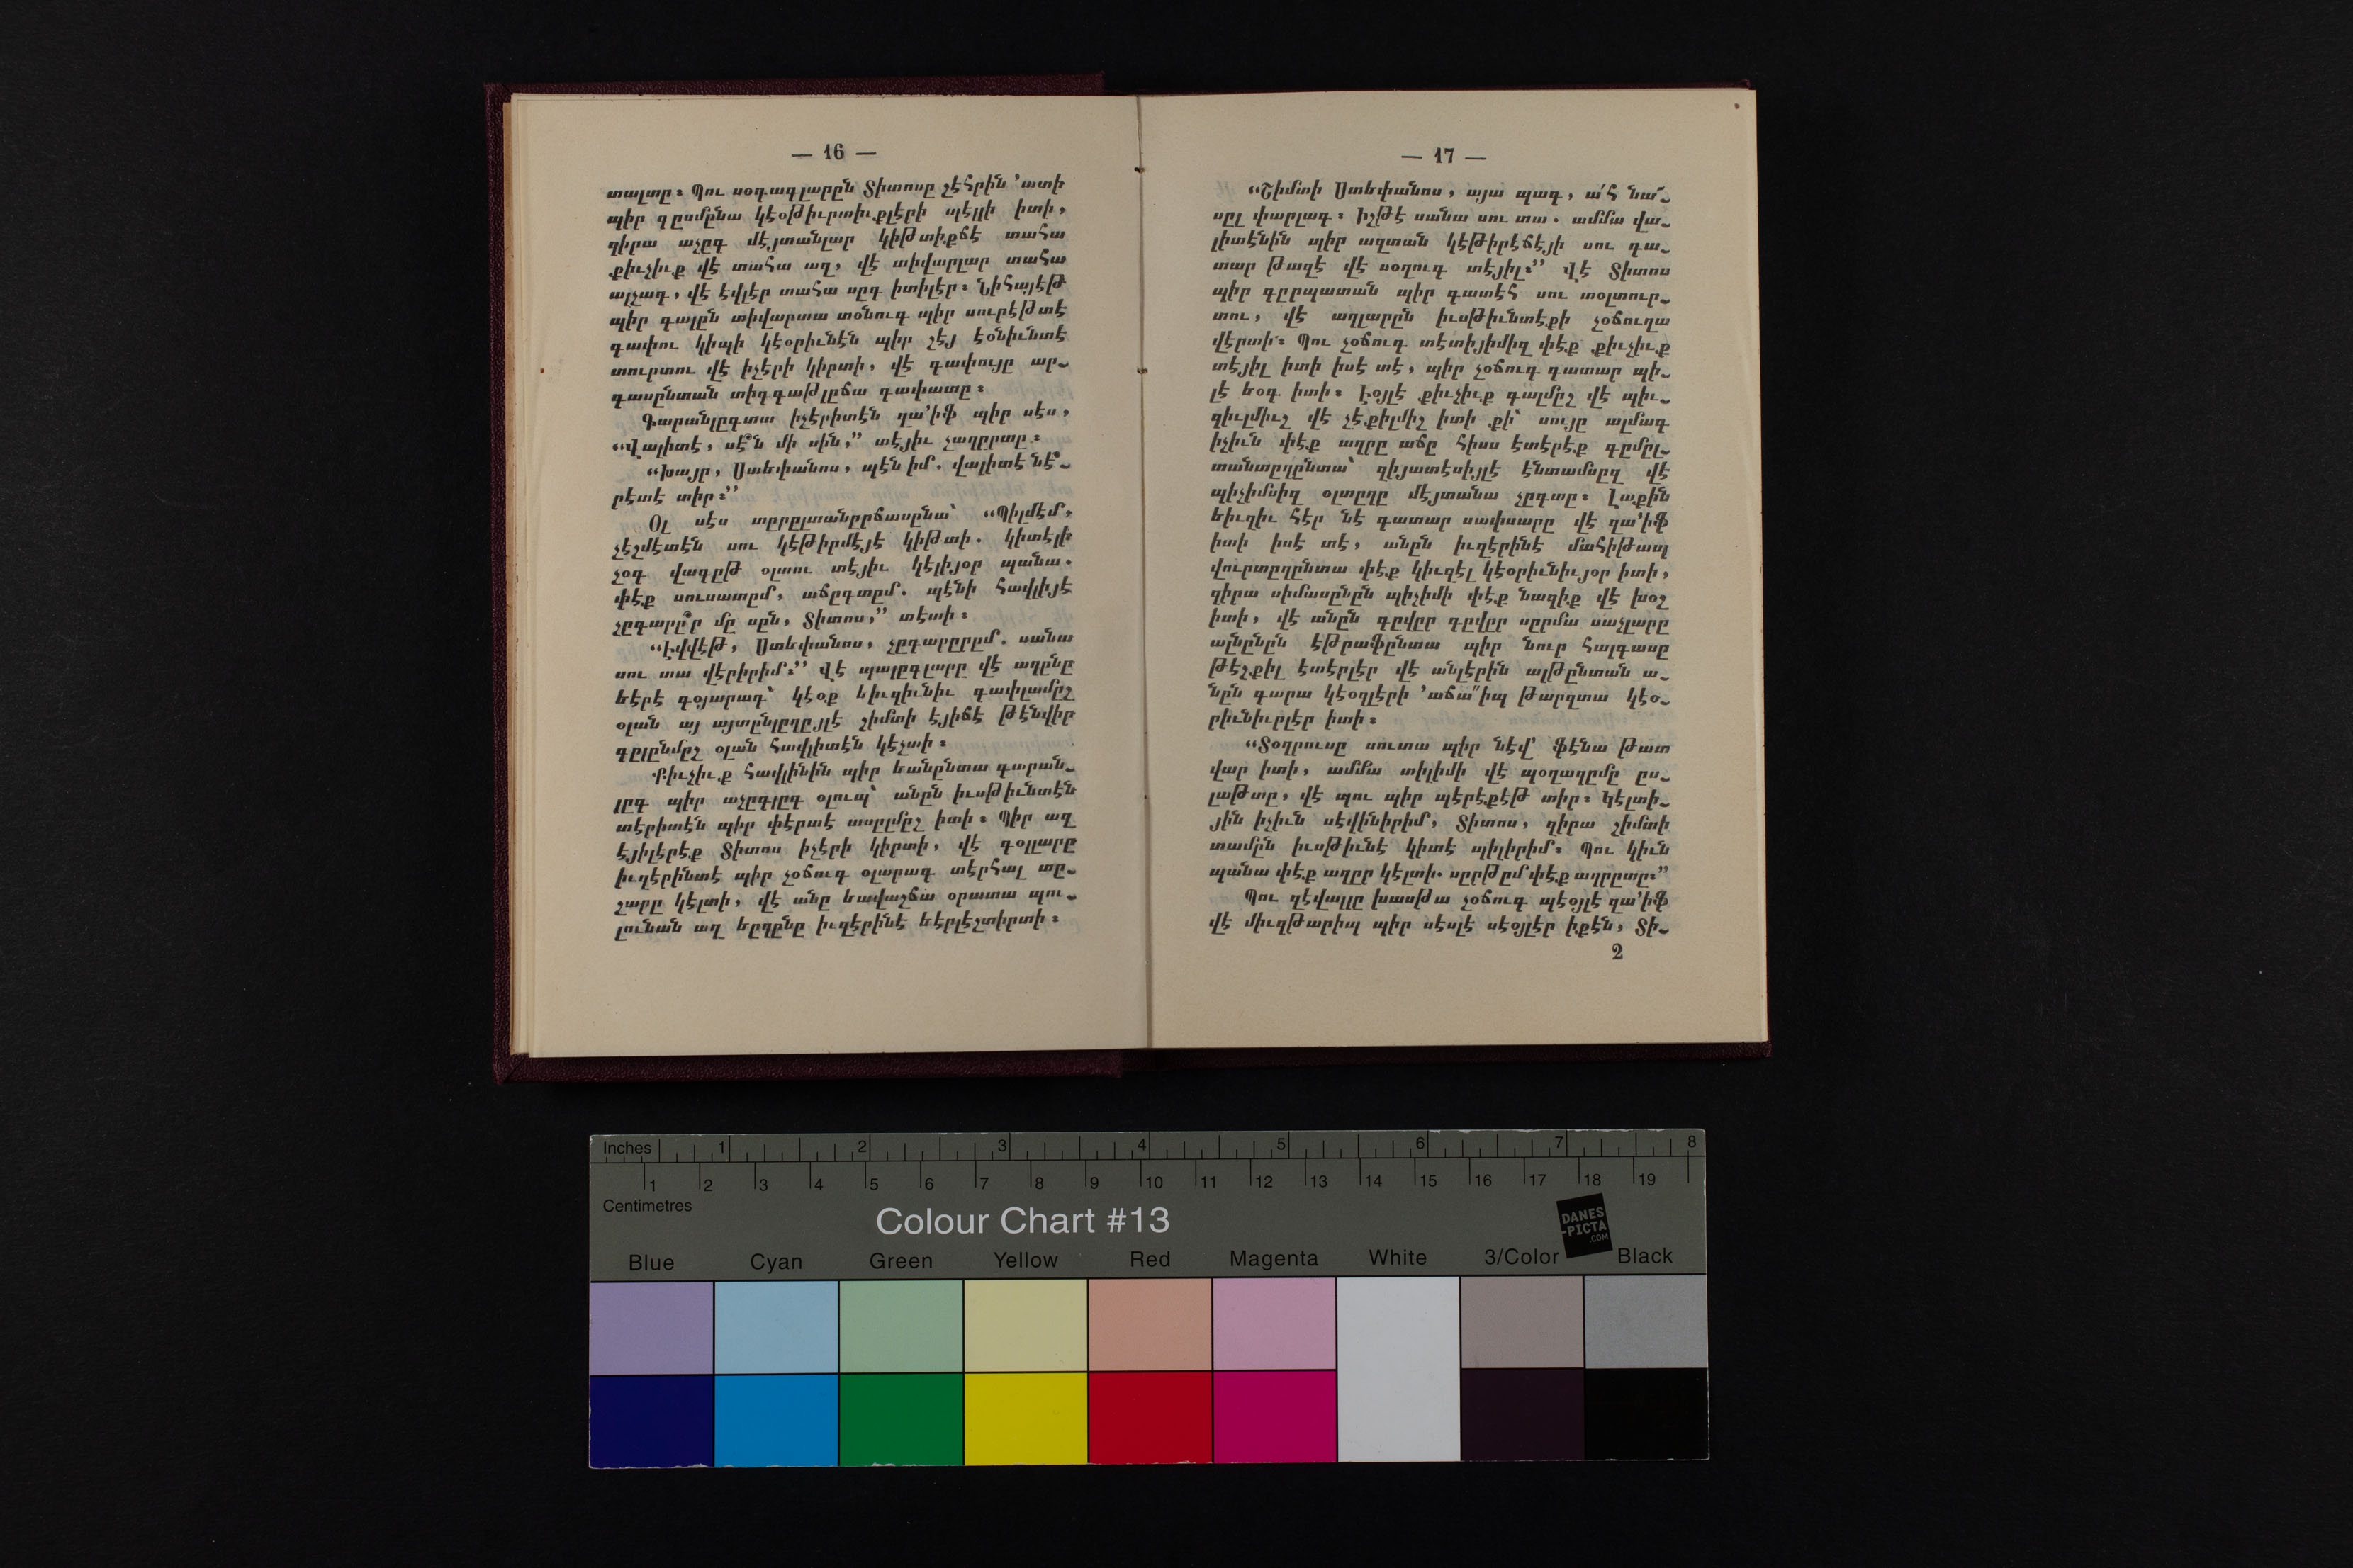 — 16 —
տալտը։ Պու սօգագլարըն Տիտոսը չէհրին ՚ատի
պիր գըսմընա կէօթիւրտիւքլէրի պէլլի իտի,
զիրա աչըգ մէյտանլար կիթտիքճէ տահա
քիւչիւք վէ տահա ազ, վէ տիվարլար տահա
ալչագ, վէ էվլէր տահա սըգ իտիլէր։ Նիհայէթ
պիր գալըն տիվարտա տօնուգ պիր սուրէթտէ
գափու կիպի կէօրիւնէն պիր շէյ էօնիւնտէ
տուրտու վէ իչէրի կիրտի, վէ գափույը ար֊
գասընտան տիգգաթլըճա գափատը։
Գարանլըգտա իչէրիտէն զա՚իֆ պիր սէս,
“Վալիտէ, սէ՞ն մի սին,” տէյիւ չաղըրտը։
“Խայր, Ստեփանոս, պէն իմ. վալիտէ նէ՞֊
րէտէ տիր։”
Օլ սէս տըրըլտանըրճասընա՝ “Պիլմէմ,
չէշմէտէն սու կէթիրմէյէ կիթտի. կիտէլի
չօգ վագըթ օլտու տէյիւ կէլիյօր պանա.
փէք սուսատըմ, աճըգտըմ. պէնի հավլիյէ
չըգարը՞ր մը սըն, Տիտոս,” տէտի։
“Էվվէթ, Ստեփանոս, չըգարըրըմ. սանա
սու տա վէրիրիմ։” Վէ պալըգլարը վէ աղընը
եէրէ գօյարագ՝ կէօք եիւզիւնիւ գափլամըշ
օլան այ այտընլըղըյլէ շիմտի էյիճէ թէնվիր
գըլընմըշ օլան հավլիտէն կէչտի։
Քիւչիւք հավլինին պիր եանընտա գարան֊
լըգ պիր աչըգլըգ օլուպ՝ անըն իւսթիւնտէն
տէրիտէն պիր փէրտէ ասըլմըշ իտի։ Պիր ազ
էյիլէրէք Տիտոս իչէրի կիրտի, վէ գօլլարը
իւզէրինտէ պիր չօճուգ օլարագ տէրհալ տը֊
շարը կէլտի, վէ անը եավաշճա օրատա պու֊
լունան աղ եըղընը իւզէրինէ եէրլէշտիրտի։
— 17 —
“Շիմտի Ստեփանոս, այա պագ, ա՛հ նա՜֊
սըլ փարլագ։ Իշթէ սանա սու տա. ամմա վա֊
լիտէնին պիր ազտան կէթիրէճէյի սու գա֊
տար թազէ վէ սօղուգ տէյիլ։” Վէ Տիտոս
պիր գըրպատան պիր գատէհ սու տօլտուր֊
տու, վէ աղլարըն իւսթիւնտէքի չօճուղա
վէրտի։ Պու չօճուգ տէտիյիմիզ փէք քիւչիւք
տէյիլ իտի իսէ տէ, պիր չօճուգ գատար պի֊
լէ եօգ իտի։ Էօյլէ քիւչիւք գալմըշ վէ պիւ֊
զիւլմիւշ վէ չէքիլմիշ իտի քի՝ սույը ալմագ
իչիւն փէք աղրը աճը հիսս էտէրէք գըմըլ֊
տանտըղընտա՝ զիյատէսիյլէ էնտամսըզ վէ
պիչիմսիզ օլտըղը մէյտանա չըգտը։ Լաքին
եիւզիւ հէր նէ գատար սափսարը վէ զա՚իֆ
իտի իսէ տէ, անըն իւզէրինէ մահիթապ
վուրտըղընտա փէք կիւզէլ կէօրիւնիւյօր իտի,
զիրա սիմասընըն պիչիմի փէք նազիք վէ խօշ
իտի, վէ անըն գըվըր գըվըր սըրմա սաչլարը
ալընընըն էթրաֆընտա պիր նուր հալգասը
թէշքիլ էտէրլէր վէ անլէրին ալթընտան ա֊
նըն գարա կէօզլէրի ՚աճա՚իպ թարզտա կէօ֊
րիւնիւրլէր իտի։
“Տօղրուսը սուտա պիր նէվ՚ ֆէնա թատ
վար իտի, ամմա տիլիմի վէ պօղազըմը ըս֊
լաթտը, վէ պու պիր պէրէքէթ տիր։ Կէլտի֊
յին իչիւն սէվինիրիմ, Տիտոս, զիրա շիմտի
տամըն իւսթիւնէ կիտէ պիլիրիմ։ Պու կիւն
պանա փէք աղըր կէլտի. սըրթըմ փէք աղրըտը։”
Պու զէվալլը խասթա չօճուգ պէօյլէ զա՚իֆ
վէ միւզթարիպ պիր սէսլէ սէօյլէր իքէն, Տի֊
2
Inches 1 2 3 4 5 6 7 8
1 2 3 4 5 6 7 8 9 10 11 12 13 14 15 16 17 18 19
Centimetres
Colour Chart #13
DANES
-PICTA
.COM
Blue Cyan Green Yellow Red Magenta White 3/Color Black